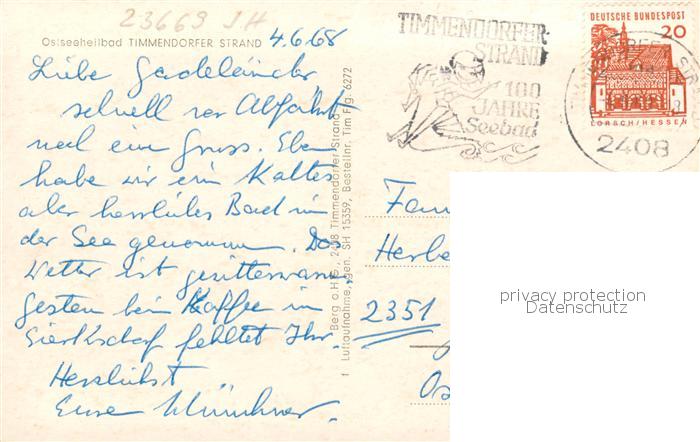 23669 JH
Ostseeheilbad TIMMENDORFER STRAND 4.6.68
Liebe Gadeländer
schnell vor Abfahrt
noch ein Gruss. Eben
haben wir ein kaltes
aber herrliches Bad in
der See genommen. Das
Wetter ist
gestern beim Kaffee in
Sierksdorf fehltet Ihr.
Herzlichst
Eure Münchner.
Berg o.H.G., 2408 Timmendorfer Strand
1 Luftaufnahme, gen. SH 15359, Bestellnr. Tim Flg. 6272
TIMMENDORFER-
STRAND
100
JAHRE
Seebad
DEUTSCHE BUNDESPOST
20
LORSCH/HESSEN
2408
Fam
Herbe
2351
privacy protection
Datenschutz